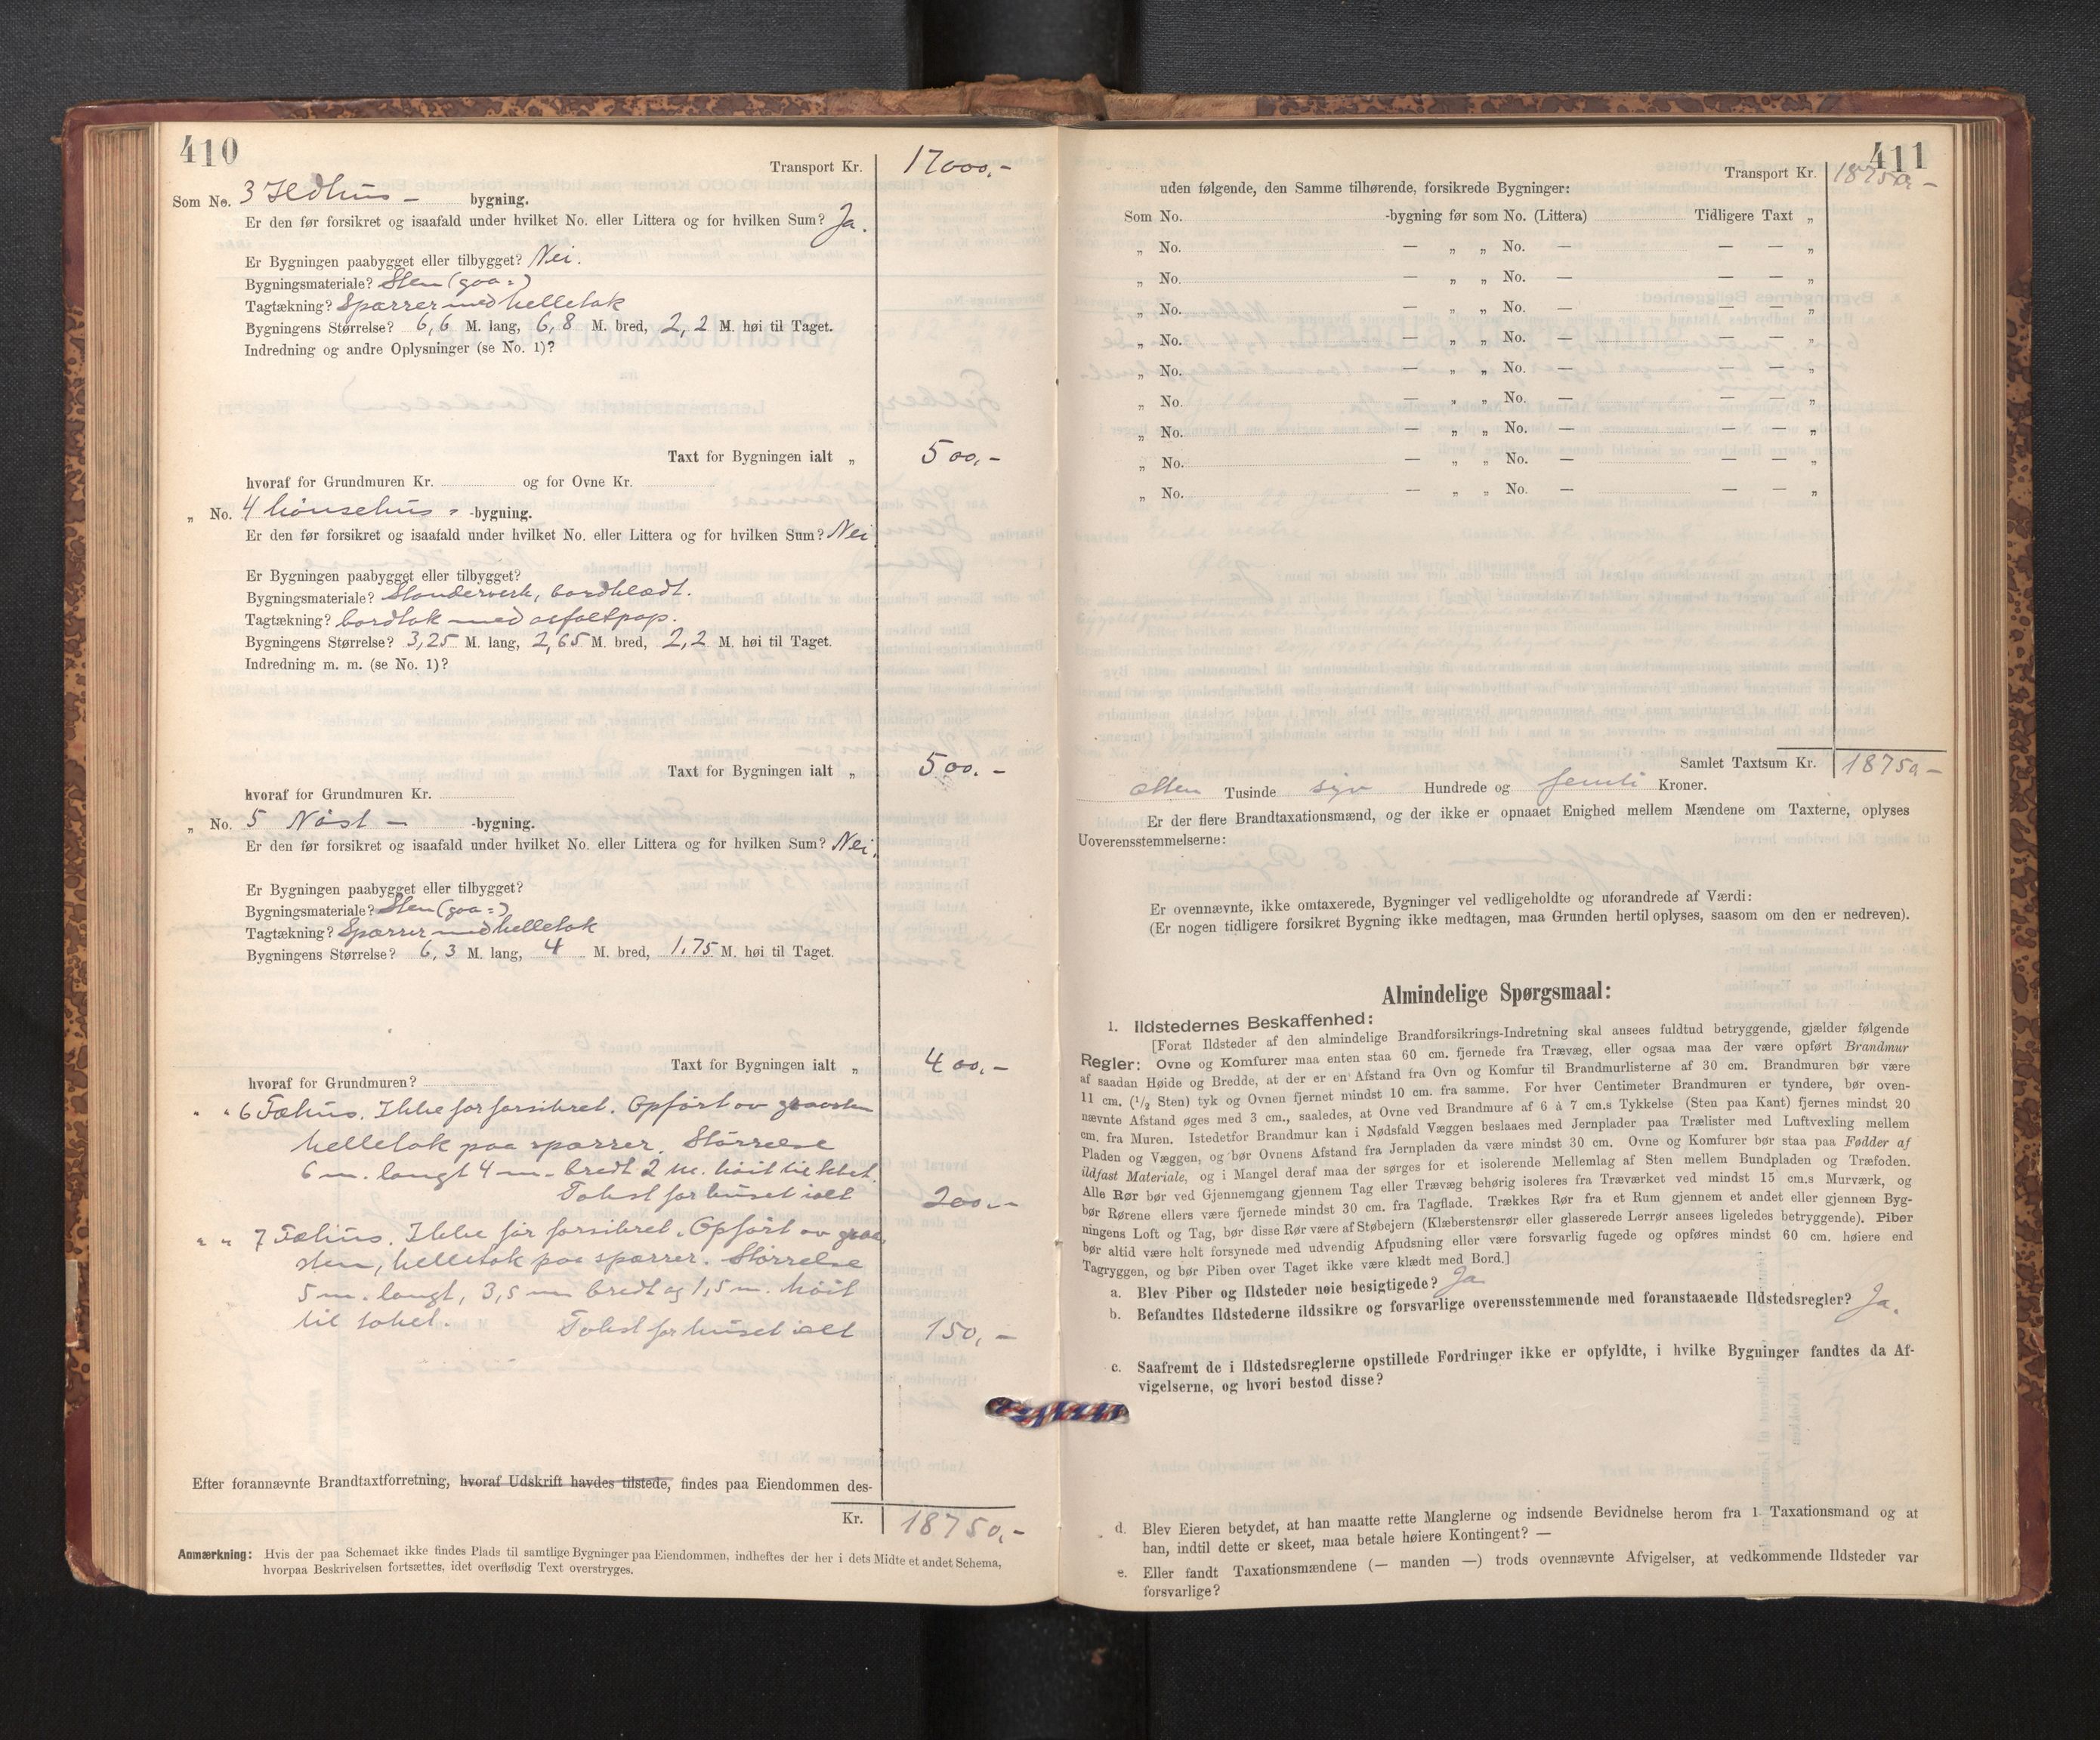 410
Transport Kr. 17000,-
Som No. 3 Ildhus - bygning.
Er den før forsikret og isaafald under hvilket No. eller Littera og for hvilken Sum? Ja.
Er Bygningen paabygget eller tilbygget? Nei.
Bygningsmateriale? Sten (graa=)
Tagtækning? Sparrer med helletak
Bygningens Størrelse? 6,6 M. lang, 6,8 M. bred, 2,2 M. høi til Taget.
Indredning og andre Oplysninger (se No. 1)?
Taxt for Bygningen ialt „ 500,-
hvoraf for Grundmuren Kr. og for Ovne Kr.
„ No. 4 hønsehus - -bygning.
Er den før forsikret og isaafald under hvilket No. eller Littera og for hvilken Sum? Nei
Er Bygningen paabygget eller tilbygget?
Bygningsmateriale? Standerverk, bordklædt.
Tagtækning? bordtak med asfaltpap.
Bygningens Størrelse? 3,25 M. lang, 2,65 M. bred, 2,2 M. høi til Taget.
Indredning m. m. (se No. 1)?
Taxt for Bygningen ialt „ 500.-
hvoraf for Grundmuren Kr.
„ No. 5 Nøst - -bygning.
Er den før forsikret og isaafald under hvilket No. eller Littera og for hvilken Sum? Nei.
Er Bygningen paabygget eller tilbygget?
Bygningsmateriale? Sten (graa=)
Tagtækning? Sparrer med helletak
Bygningens Størrelse? 6,3 M. lang, 4 M. bred, 1,75 M. høi til Taget.
Taxt for Bygningen ialt „ 400,-
hvoraf for Grundmuren?
„ „ 6 Fæhus. Ikke før forsikret. Opført av graasten
helletak paa sparrer. Størrelse
6 m. langt 4 m. bredt 2 m. høit til taket.
Takst for huset ialt 200,-
„ „ 7 Fæhus. Ikke før forsikret. Opført av graa
sten, helletak paa sparrer. Størrelse
5 m. langt, 3,5 m bredt og 1,5 m. høit
til taket. Takst for huset ialt 150,-
Efter forannævnte Brandtaxtforretning, hvoraf Udskrift havdes tilstede, findes paa Eiendommen des-
Kr. 18750,-
Anmærkning: Hvis der paa Schemaet ikke findes Plads til samtlige Bygninger paa Eiendommen, indheftes der her i dets Midte et andet Schema,
hvorpaa Beskrivelsen fortsættes, idet overflødig Text overstryges.
411
Transport Kr. 18750-
uden følgende, den Samme tilhørende, forsikrede Bygninger:
Som No. -bygning før som No. (Littera) Tidligere Taxt „
„ No. — „ „ No. — — — „
„ No. — „ „ No. — — — „
„ No. — „ „ No. — — — „
„ No. — „ „ No. — — — „
„ No. — „ „ No. — — — „
„ No. — „ „ No. — — — „
„ No. — „ „ No. — — — „
„ No. — „ „ No. — — — „
„ No. — „ „ No. — — — „
Samlet Taxtsum Kr. 18750-
Atten Tusinde syv Hundrede og femti Kroner.
Er der flere Brandtaxationsmænd, og der ikke er opnaaet Enighed mellem Mændene om Taxterne, oplyses
Uoverensstemmelserne:
Er ovennævnte, ikke omtaxerede, Bygninger vel vedligeholdte og uforandrede af Værdi:
(Er nogen tidligere forsikret Bygning ikke medtagen, maa Grunden hertil oplyses, saasom om den er nedreven).
Almindelige Spørgsmaal:
1. Ildstedernes Beskaffenhed:
[Forat Ildsteder af den almindelige Brandforsikrings-Indretning skal ansees fuldtud betryggende, gjælder følgende
Regler: Ovne og Komfurer maa enten staa 60 cm. fjernede fra Trævæg, eller ogsaa maa der være opført Brandmur
af saadan Høide og Bredde, at der er en Afstand fra Ovn og Komfur til Brandmurlisterne af 30 cm. Brandmuren bør være
11 cm. (1/2 Sten) tyk og Ovnen fjernet mindst 10 cm. fra samme. For hver Centimeter Brandmuren er tyndere, bør oven-
nævnte Afstand øges med 3 cm., saaledes, at Ovne ved Brandmure af 6 à 7 cm.s Tykkelse (Sten paa Kant) fjernes mindst 20
cm. fra Muren. Istedetfor Brandmur kan i Nødsfald Væggen beslaaes med Jernplader paa Trælister med Luftvexling mellem
Pladen og Væggen, og bør Ovnens Afstand fra Jernpladen da være mindst 30 cm. Ovne og Komfurer bør staa paa Fødder af
ildfast Materiale, og i Mangel deraf maa der sørges for et isolerende Mellemlag af Sten mellem Bundpladen og Træfoden.
Alle Rør bør ved Gjennemgang gjennem Tag eller Trævæg behørig isoleres fra Træværket ved mindst 15 cm.s Murværk, og
bør Rørene ellers være fjernede mindst 30 cm. fra Tagflade. Trækkes Rør fra et Rum gjennem et andet eller gjennem Byg-
ningens Loft og Tag, bør disse Rør være af Støbejern (Klæberstensrør eller glasserede Lerrør ansees ligeledes betryggende). Piber
bør altid være helt forsynede med udvendig Afpudsning eller være forsvarlig fugede og opføres mindst 60 cm. høiere end
Tagryggen, og bør Piben over Taget ikke være klædt med Bord.]
a. Blev Piber og Ildsteder nøie besigtigede? Ja
b. Befandtes Ildstederne ildssikre og forsvarlige overensstemmende med foranstaaende Ildstedsregler? Ja.
c. Saafremt de i Ildstedsreglerne opstillede Fordringer ikke er opfyldte, i hvilke Bygninger fandtes da Af-
vigelserne, og hvori bestod disse?
d. Blev Eieren betydet, at han maatte rette Manglerne og indsende Bevidnelse herom fra 1 Taxationsmand og at
han, indtil dette er skeet, maa betale høiere Kontingent? —
e. Eller fandt Taxationsmændene (— manden —) trods ovennævnte Afvigelser, at vedkommende Ildsteder var
forsvarlige?